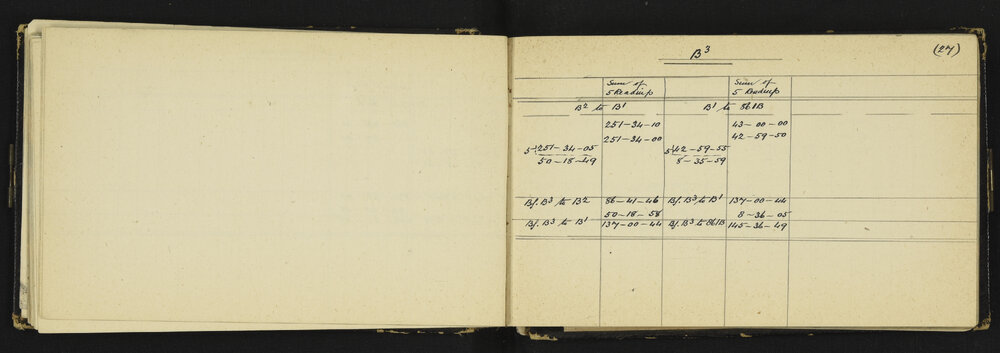 (27)
B³
Sum of Sum of
5 Readings 5 Readings
B² to B¹ B¹ to 861B
251-34-10 43-00-00
251-34-00 42-59-50
5)251-34-05 5)42-59-55
50-18-49 8-35-59
Bg. B³ to B² 86-41-46 Bg. B³ to B¹ 137-00-44
50-18-58 8-36-05
Bg. B³ to B¹ 137-00-44 Bg. B³ to 861B 145-36-49